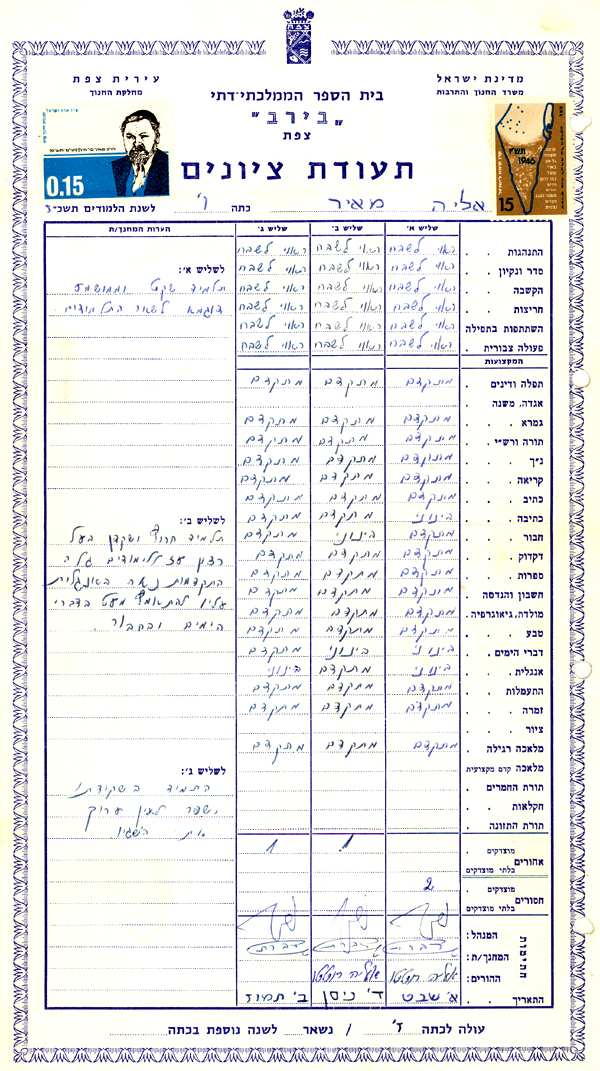 צפת
מדינת ישראל
משרד החנוך והתרבות
עירית צפת
מחלקת החנוך
בית הספר הממלכתי־דתי
"בירב"
צפת
תעודת ציונים
תש"ו
1946
15
0.15
אליה מאיר כתה ו' לשנת הלמודים תשכ"ג
שליש א': שליש ב': שליש ג': הערות המחנך/ת
התנהגות ראוי לשבח ראוי לשבח ראוי לשבח
סדר ונקיון ראוי לשבח ראוי לשבח ראוי לשבח
לשליש א':
הקשבה ראוי לשבח ראוי לשבח ראוי לשבח תלמיד שקט וממושמע
חריצות ראוי לשבח ראוי לשבח ראוי לשבח דוגמא לשאר התלמידים
השתתפות בתפילה ראוי לשבח ראוי לשבח ראוי לשבח
פעולה צבורית ראוי לשבח ראוי לשבח ראוי לשבח
המקצועות
תפלה ודינים מתקדם מתקדם מתקדם
אגדה, משנה
גמרא מתקדם מתקדם מתקדם
תורה ורש"י מתקדם מתקדם מתקדם
נ"ך מתקדם מתקדם מתקדם
קריאה מתקדם מתקדם מתקדם
כתיב מתקדם מתקדם מתקדם
כתיבה בינוני מתקדם מתקדם
לשליש ב':
חבור מתקדם בינוני מתקדם תלמיד חרוץ ושקדן בעל
דקדוק מתקדם מתקדם מתקדם רצון עז ללימודים גלה
ספרות מתקדם מתקדם מתקדם התקדמות נאה באנגלית
חשבון והנדסה מתקדם מתקדם מתקדם עליו להתאמץ מעט בדברי
מולדה, גיאוגרפיה מתקדם מתקדם מתקדם הימים ובחבור.
טבע מתקדם מתקדם מתקדם
דברי הימים בינוני בינוני מתקדם
אנגלית בינוני מתקדם בינוני
התעמלות מתקדם מתקדם מתקדם
זמרה מתקדם מתקדם מתקדם
ציור
מלאכה רגילה מתקדם מתקדם מתקדם
מלאכה קדם מקצועית
לשליש ג':
תורת החמרים התמיד בשקידתו
חקלאות ושפר לאין ערוך
תורת התזונה את השגיו
אחורים
מוצדקים 1 1
בלתי מוצדקים
חסורים
מוצדקים 2
בלתי מוצדקים
חתימות
המנהל:
המחנך/ת:
ההורים: אליה
התאריך א' שבט ד' ניסן ב' תמוז
עולה לכתה ז' / נשאר לשנה נוספת בכתה